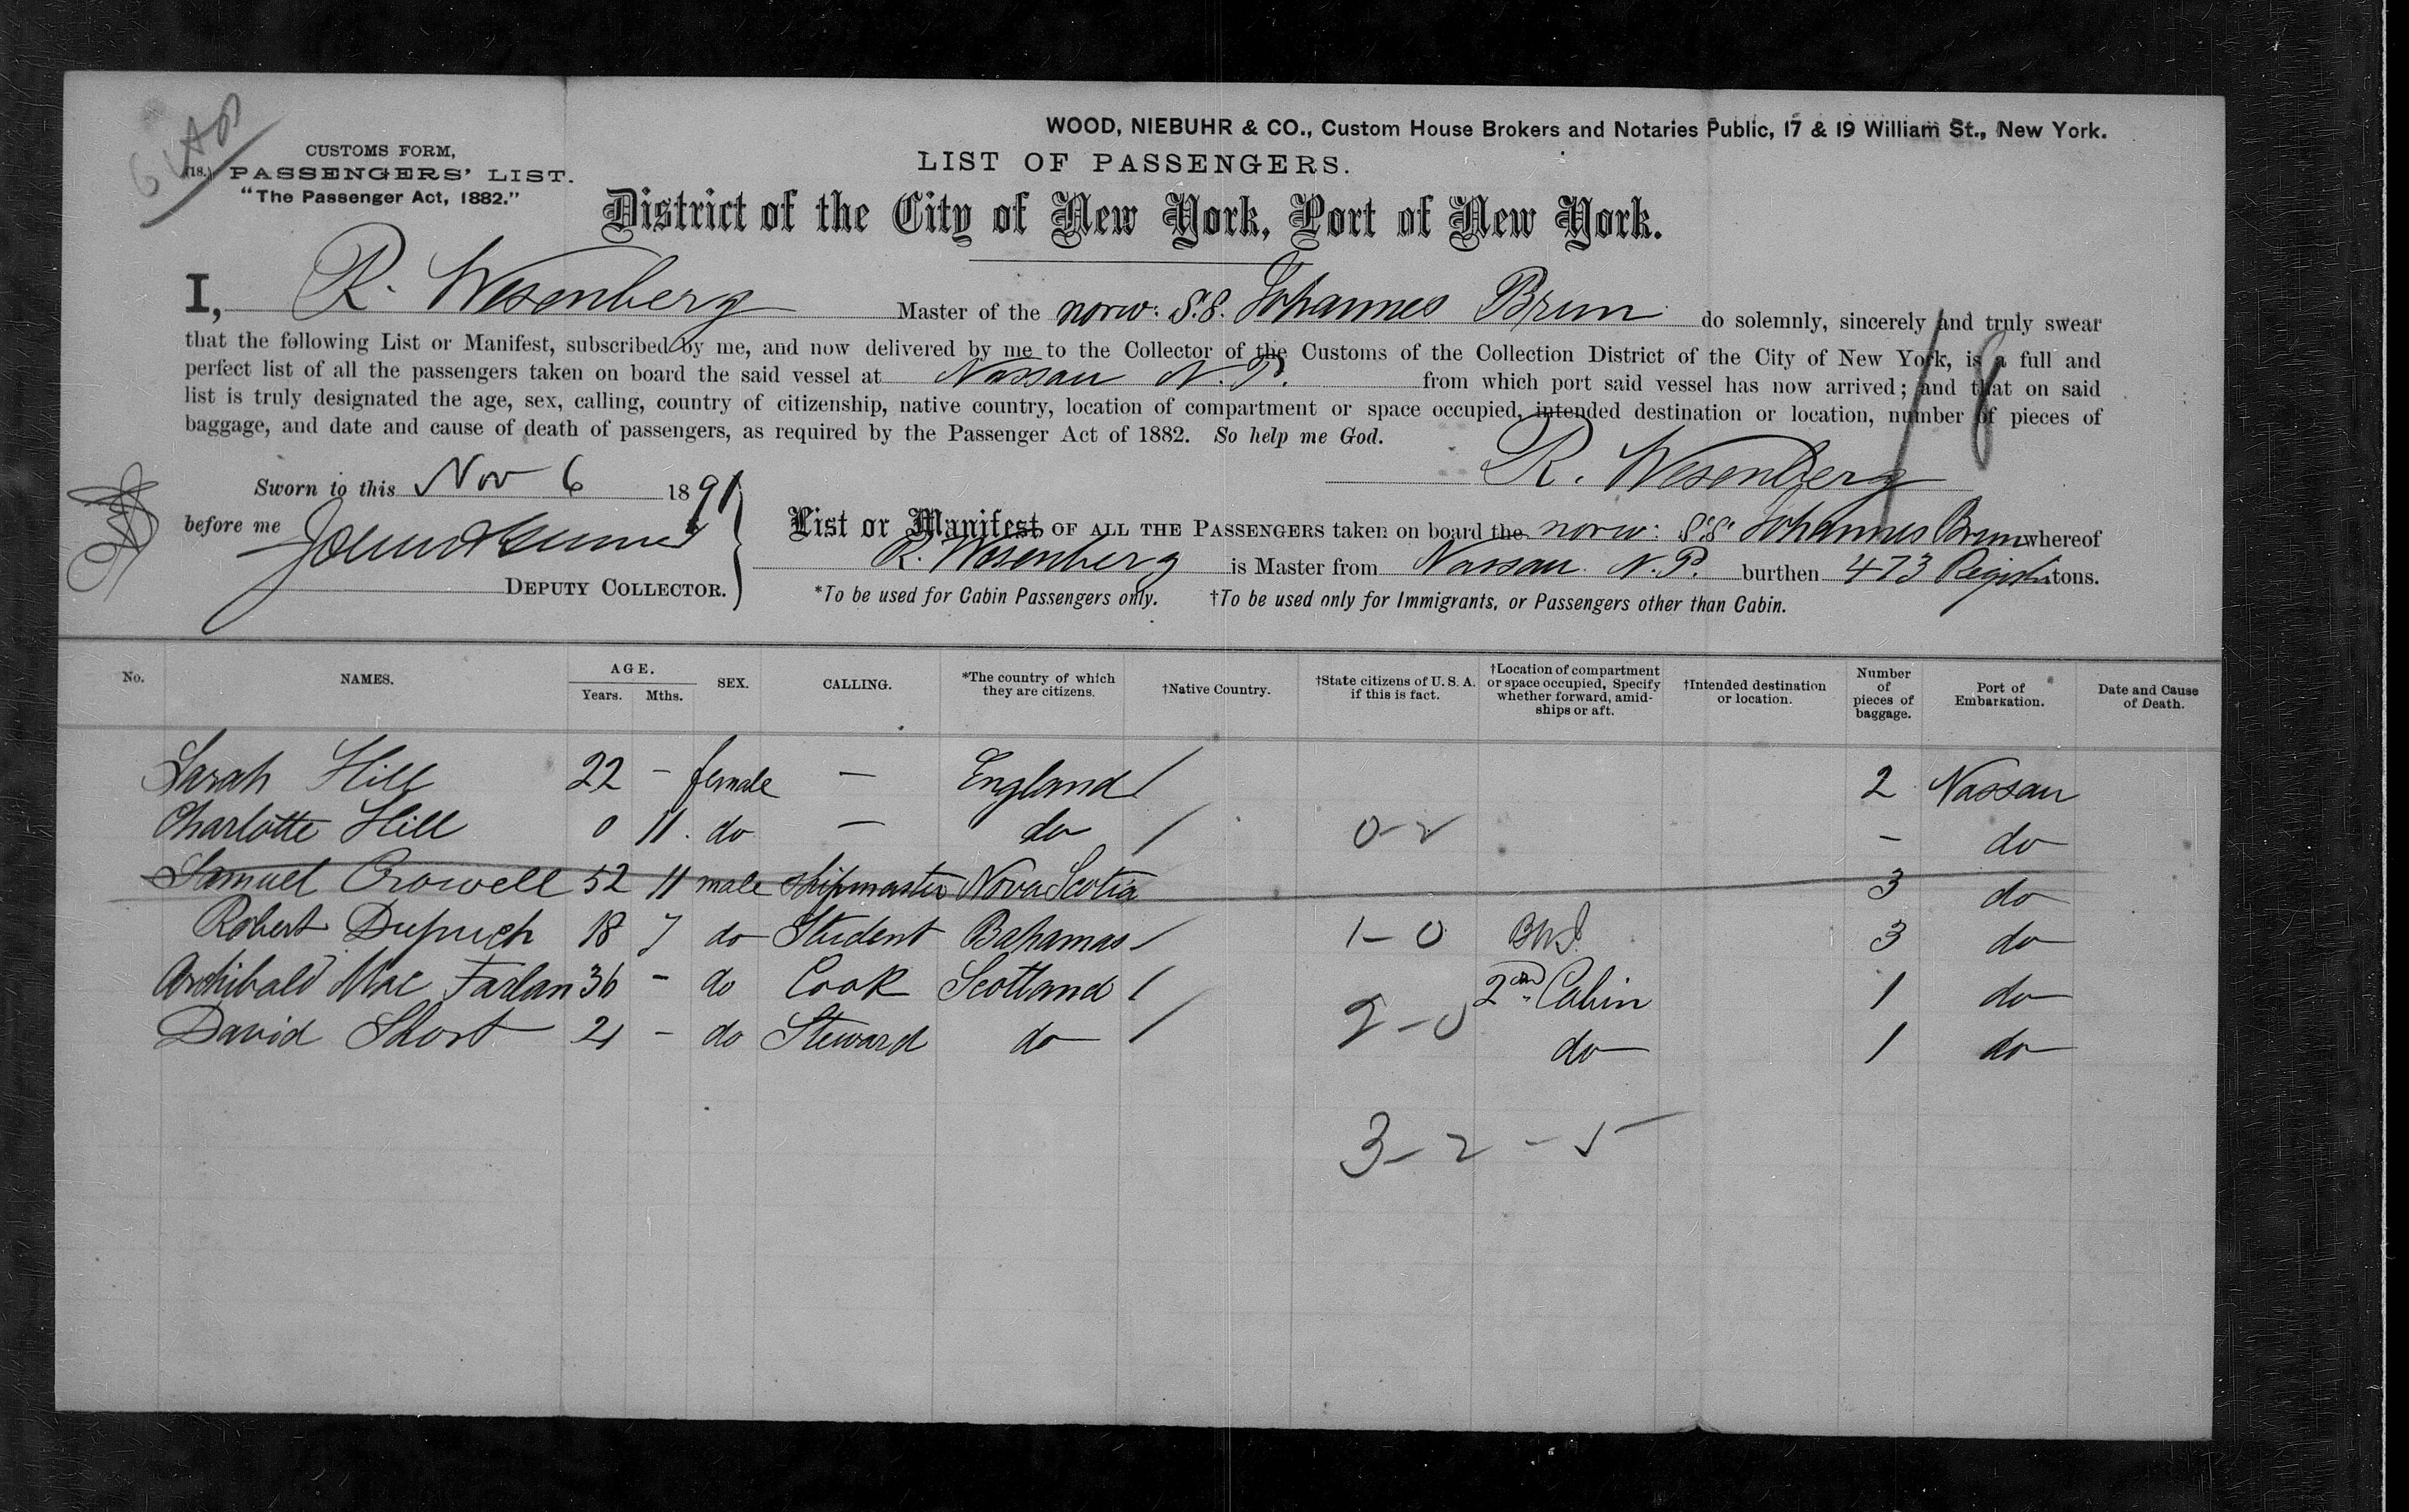 WOOD, NIEBUHR & CO., Custom House Brokers and Notaries Public, 17 & 19 William St., New York.
CUSTOMS FORM,
(18.) PASSENGERS' LIST.
"The Passenger Act, 1882."
LIST OF PASSENGERS.
District of the City of New York, Port of New York.
I, R. Wesenberg Master of the norw: S.S. Johannes Brun do solemnly, sincerely and truly swear
that the following List or Manifest, subscribed by me, and now delivered by me to the Collector of the Customs of the Collection District of the City of New York, is a full and
perfect list of all the passengers taken on board the said vessel at Nassau N.P. from which port said vessel has now arrived; and that on said
list is truly designated the age, sex, calling, country of citizenship, native country, location of compartment or space occupied, intended destination or location, number of pieces of
baggage, and date and cause of death of passengers, as required by the Passenger Act of 1882. So help me God.
R. Wesenberg
Sworn to this Nov 6 1891
before me
DEPUTY COLLECTOR.
List or Manifest OF ALL THE PASSENGERS taken on board the norw: S.S. Johannes Brun whereof
R. Wesenberg is Master from Nassau N.P. burthen 473 Register tons.
*To be used for Cabin Passengers only. †To be used only for Immigrants, or Passengers other than Cabin.
No. NAMES. AGE. Years. Mths. SEX. CALLING. *The country of which they are citizens. †Native Country. †State citizens of U. S. A. if this is fact. †Location of compartment or space occupied, Specify whether forward, amidships or aft. †Intended destination or location. Number of pieces of baggage. Port of Embarkation. Date and Cause of Death.
Sarah Hill 22 - female - England / 2 Nassau
Charlotte Hill 0 11. do - do / 0-2 - do
Samuel Crowell 52 11 male shipmaster Nova Scotia 3 do
Robert Dupuch 18 7 do Student Bahamas / 1-0 BWI. 3 do
Archibald Mac Farlan 36 - do Cook Scotland / 2nd Cabin 1 do
David Short 21 - do Steward do / 2-0 do 1 do
3-2-5